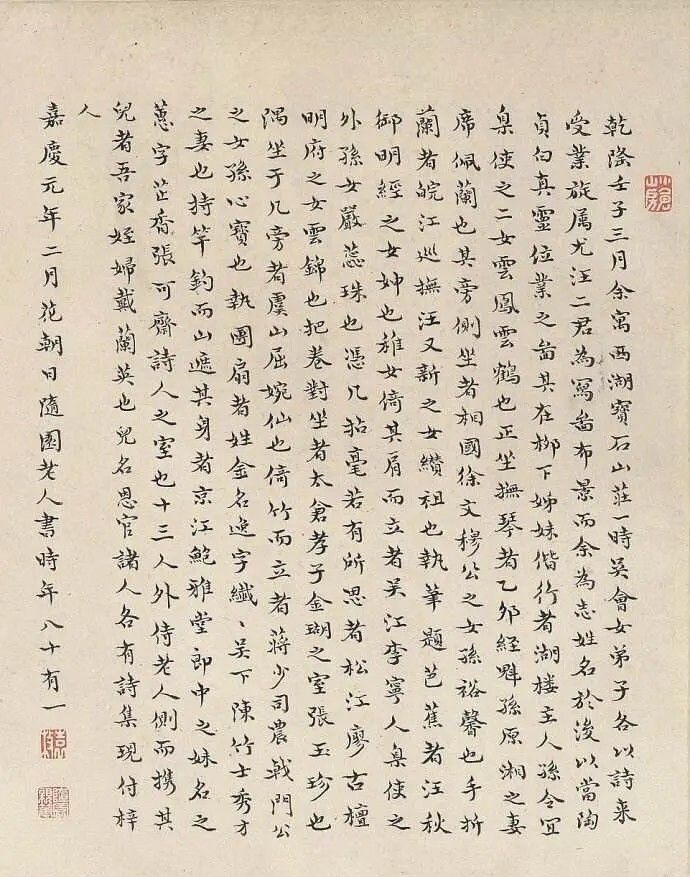 乾隆壬子三月余寓西湖寶石山莊一時吳會女弟子各以詩来
受業旋属尤汪二君為寫啚布景而余為志姓名於後以當陶
貞白真靈位業之啚其在柳下姊妹偕行者湖楼主人孫令宜
臬使之二女雲鳳雲鶴也正坐撫琴者乙卯經魁孫原湘之妻
席佩蘭也其旁側坐者相國徐文穆公之女孫裕馨也手折
蘭者皖江巡撫汪又新之女纘祖也執筆題芭蕉者汪秋
御明經之女妽也稚女倚其肩而立者吳江李寧人臬使之
外孫女嚴蕊珠也憑几拈毫若有所思者松江廖古檀
明府之女雲錦也把卷對坐者太倉孝子金瑚之室張玉珍也
隅坐于几旁者虞山屈婉仙也倚竹而立者蔣少司農戟門公
之女孫心寶也執團扇者姓金名逸字纖〻吳下陳竹士秀才
之妻也持竿釣而山遮其身者京江鮑雅堂郎中之妹名之
蕙字茝香張可齋詩人之室也十三人外侍老人側而攜其
兒者吾家姪婦戴蘭英也兒名恩官諸人各有詩集現付梓
人
嘉慶元年二月花朝日隨園老人書時年八十有一